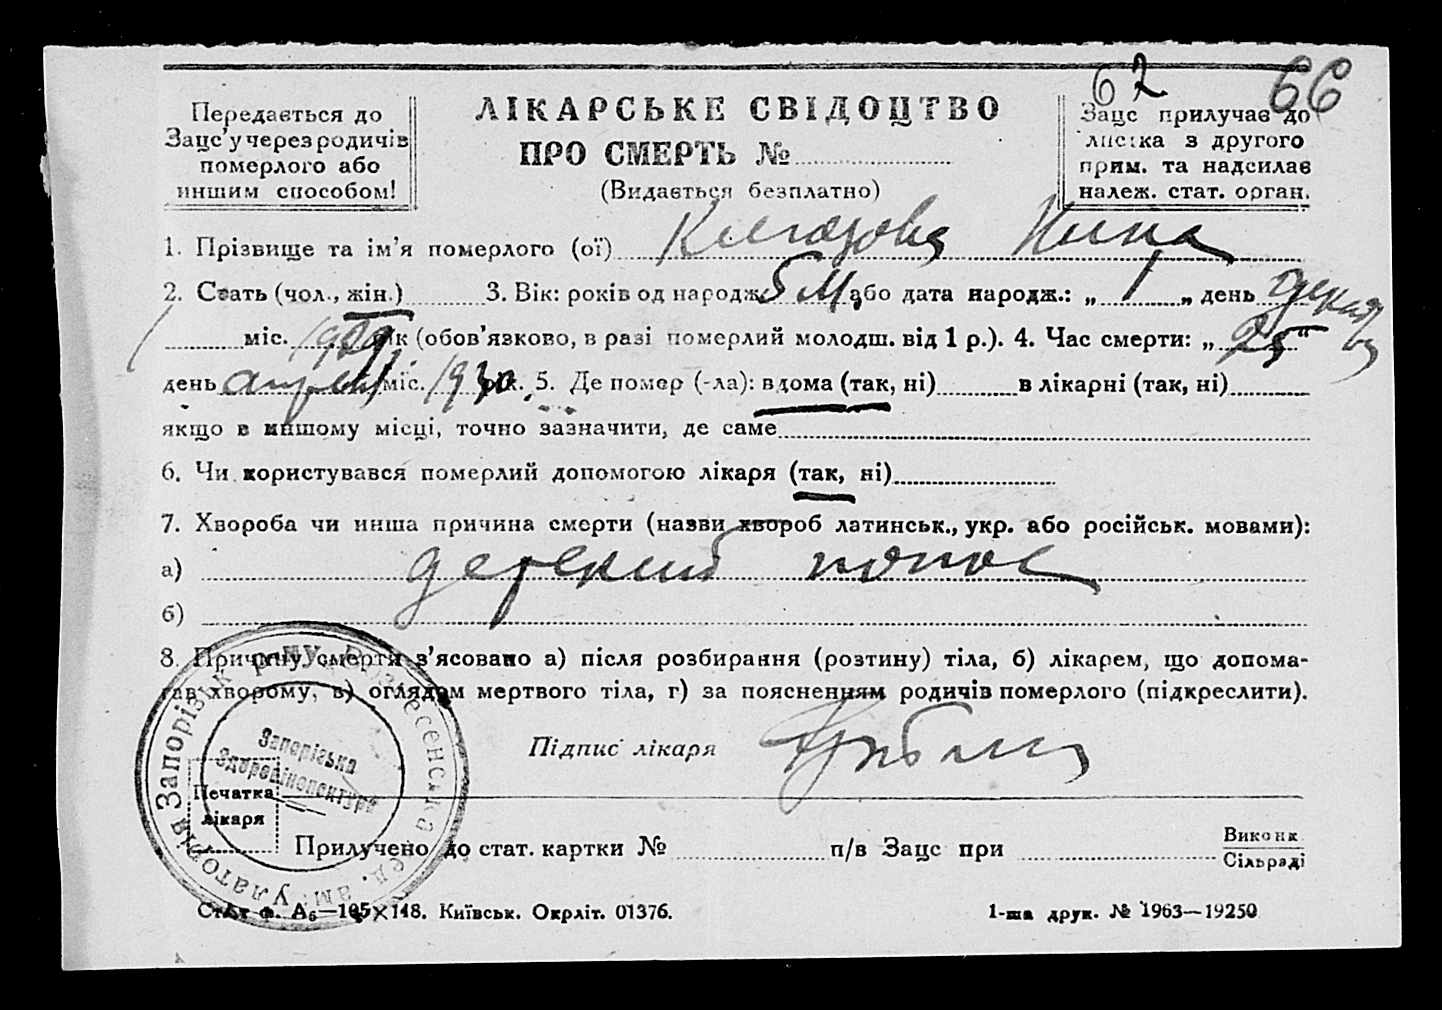 62 66
Передається до
Зацс'у через родичів
померлого або
иншим способом!
ЛІКАРСЬКЕ СВІДОЦТВО
ПРО СМЕРТЬ №
(Видається безплатно)
Зацс прилучає до
листка з другого
прим. та надсилає
належ. стат. орган.
1. Прізвище та ім'я померлого (ої) Нина
2. Стать (чол., жін.) 3. Вік: років од народж. 5 м. або дата народж.: „ 1 „ день декабря
міс. 1929 рік (обов'язково, в разі померлий молодш. від 1 р.). 4. Час смерти: „ 25 “
день апреля міс. 1930 рік. 5. Де помер (-ла): вдома (так, ні) в лікарні (так, ні)
якщо в иншому місці, точно зазначити, де саме
6. Чи користувався померлий допомогою лікаря (так, ні)
7. Хвороба чи инша причина смерти (назви хвороб латинськ., укр. або російськ. мовами):
а) детский понос
б)
8. Причину смерти з'ясовано а) після розбирання (розтину) тіла, б) лікарем, що допома-
гав хворому, в) оглядом мертвого тіла, г) за поясненням родичів померлого (підкреслити).
Підпис лікаря
Запорізька
Здоровінспектура
Вознесенська мед. амбулаторія Запорізьк. району
Печатка
лікаря
Прилучено до стат. картки № п/в Зацс при Виконк
Сільраді
Стат-ф. А₆—105×148. Київськ. Окрліт. 01376. 1-ша друк. № 1963—19250